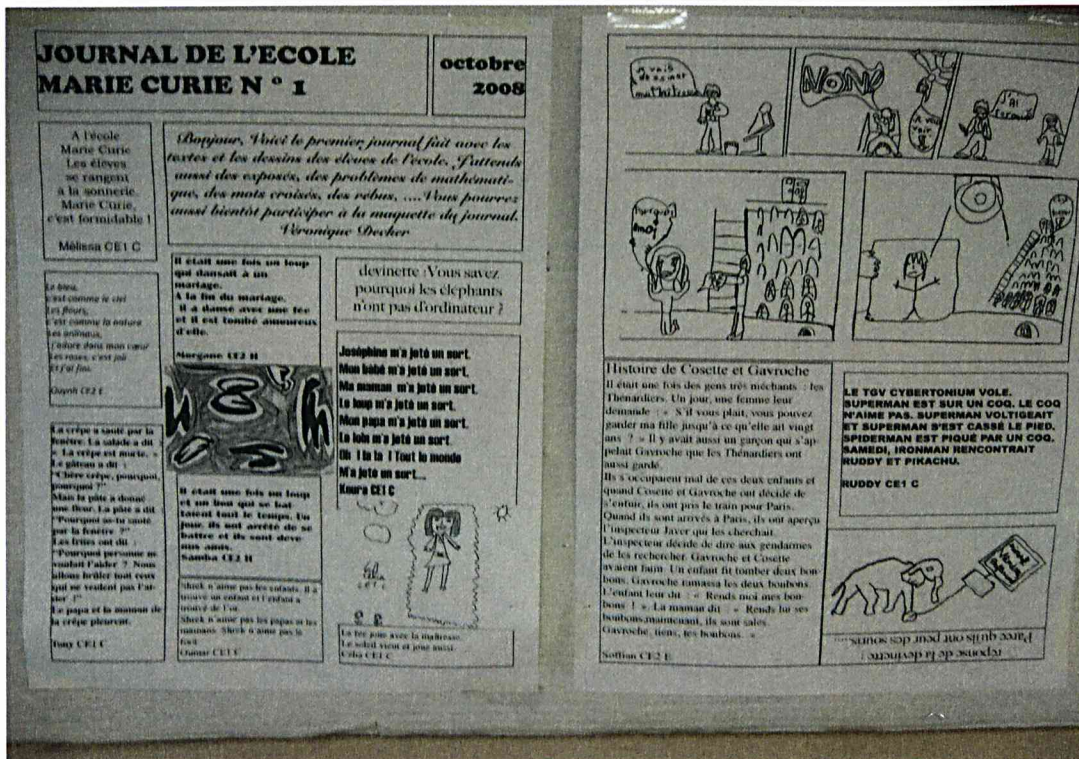 JOURNAL DE L'ECOLE
MARIE CURIE N ° 1
octobre
2008
A l'école
Marie Curie
Les élèves
se rangent
à la sonnerie.
Marie Curie,
c'est formidable !
Mélissa CE1 C
Bonjour, Voici le premier journal fait avec les
textes et les dessins des élèves de l'école. J'attends
aussi des exposés, des problèmes de mathémati-
que, des mots croisés, des rébus, ....Vous pourrez
aussi bientôt participer à la maquette du journal.
Véronique Decker
Le bleu,
c'est comme le ciel
Les fleurs,
c'est comme la nature
Les animaux,
j'adore dans mon cœur
Les roses, c'est joli
Et j'ai fini.
CE2 E
La crêpe a sauté par la
fenêtre. La salade a dit
« La crêpe est morte. »
Le gâteau a dit :
"Chère crêpe, pourquoi,
pourquoi ?"
Mais la pâte a donné
une fleur. La pâte a dit
"Pourquoi as-tu sauté
par la fenêtre ?"
Les frites ont dit :
"Pourquoi personne ne
voulait l'aider ? Nous
allons brûler tout ceux
qui ne veulent pas l'ai-
der !"
Le papa et la maman de
la crêpe pleurent.
Tony CE1 C
Il était une fois un loup
qui dansait à un
mariage.
A la fin du mariage,
il a dansé avec une fée
et il est tombé amoureux
d'elle.
Morgane CE2 H
Il était une fois un loup
et un lion qui se bat
taient tout le temps. Un
jour, ils ont arrêté de se
battre et ils sont deve-
nus amis.
Samba CE2 H
Shrek n'aime pas les enfants. Il a
trouvé un enfant et l'enfant a
trouvé de l'or.
Shrek n'aime pas les papas ni les
mamans. Shrek n'aime pas le
foot.
Oumar CE1 C
devinette :Vous savez
pourquoi les éléphants
n'ont pas d'ordinateur ?
Joséphine m'a jeté un sort.
Mon bébé m'a jeté un sort.
Ma maman m'a jeté un sort.
Le loup m'a jeté un sort.
Mon papa m'a jeté un sort.
Le m'a jeté un sort.
Oh ! la la ! Tout le monde
M'a jeté un sort...
Koura CE1 C
La fée joue avec la maîtresse.
Le soleil vient et joue aussi.
Célia CE1 C
je vais
dessiner
NON!
J'ai
Pourquoi
moi
Histoire de Cosette et Gavroche
Il était une fois des gens très méchants : les
Thénardiers. Un jour, une femme leur
demande : « S'il vous plait, vous pouvez
garder ma fille jusqu'à ce qu'elle ait vingt
ans ? » Il y avait aussi un garçon qui s'ap-
pelait Gavroche que les Thénardiers ont
aussi gardé.
Ils s'occupaient mal de ces deux enfants et
quand Cosette et Gavroche ont décidé de
s'enfuir, ils ont pris le train pour Paris.
Quand ils sont arrivés à Paris, ils ont aperçu
l'inspecteur Javer qui les cherchait.
L'inspecteur décide de dire aux gendarmes
de les rechercher. Gavroche et Cosette
avaient faim. Un enfant fit tomber deux bon-
bons. Gavroche ramassa les deux bonbons.
L'enfant leur dit : « Rends moi mes bon-
bons ! ». La maman dit : « Rends lui ses
bonbons maintenant, ils sont sales.
Gavroche, tiens, tes bonbons. »
Soffian CE2 E
LE TGV CYBERTONIUM VOLE.
SUPERMAN EST SUR UN COQ. LE COQ
N'AIME PAS. SUPERMAN VOLTIGEAIT
ET SUPERMAN S'EST CASSÉ LE PIED.
SPIDERMAN EST PIQUÉ PAR UN COQ.
SAMEDI, IRONMAN RENCONTRAIT
RUDDY ET PIKACHU.
RUDDY CE1 C
réponse de la devinette :
Parce qu'ils ont peur des souris....